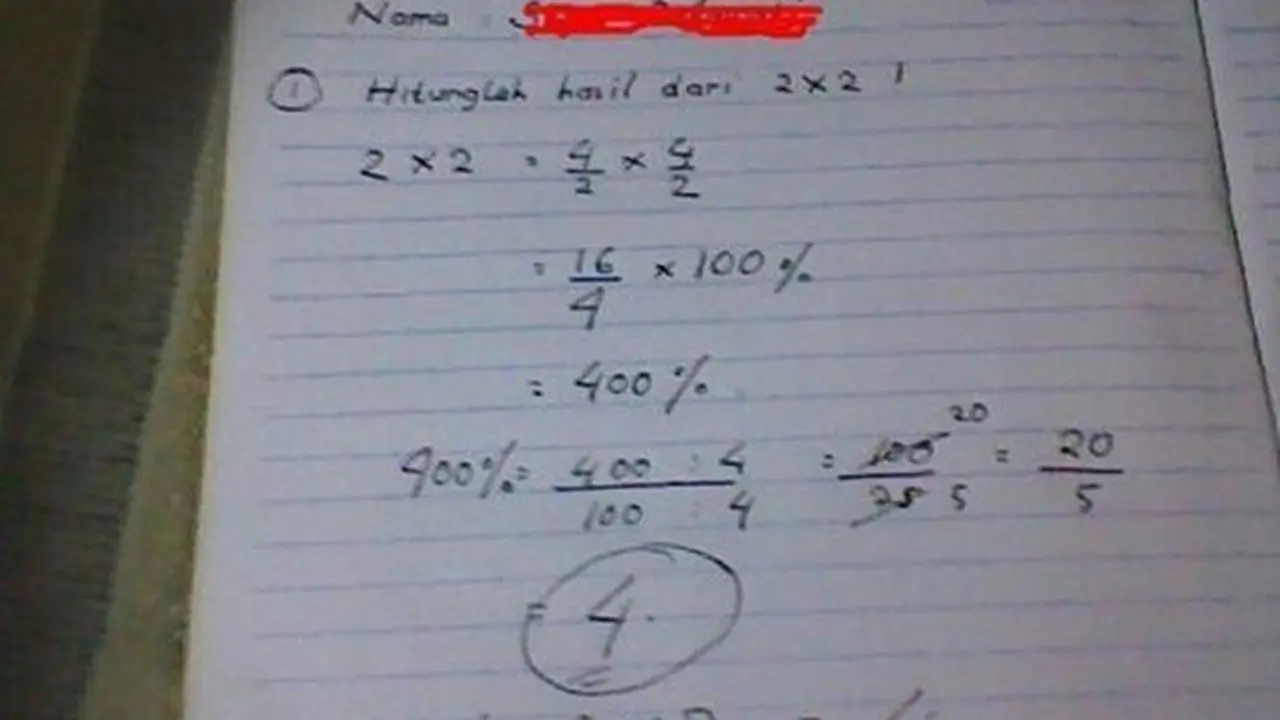 Nama :
① Hitunglah hasil dari 2 × 2 !
2 × 2 = 4/2 × 4/2
= 16/4 × 100 %
= 400 %
400% = 400 : 4 / 100 : 4 = 100 20 / 25 5 = 20/5
= 4.